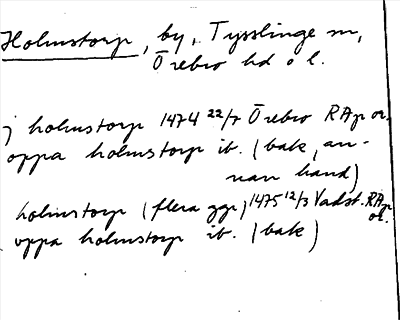 Holmstorp, by, Tysslinge sn,
Örebro hd o l.
j holmstorp 1474 22/7 Örebro RAp or.
oppa holmstorp ib. (bak, an-
nan hand)
holmstorp (flera ggr) 1475 12/3 Vadst. RAp or.
oppa holmstorp ib. (bak)